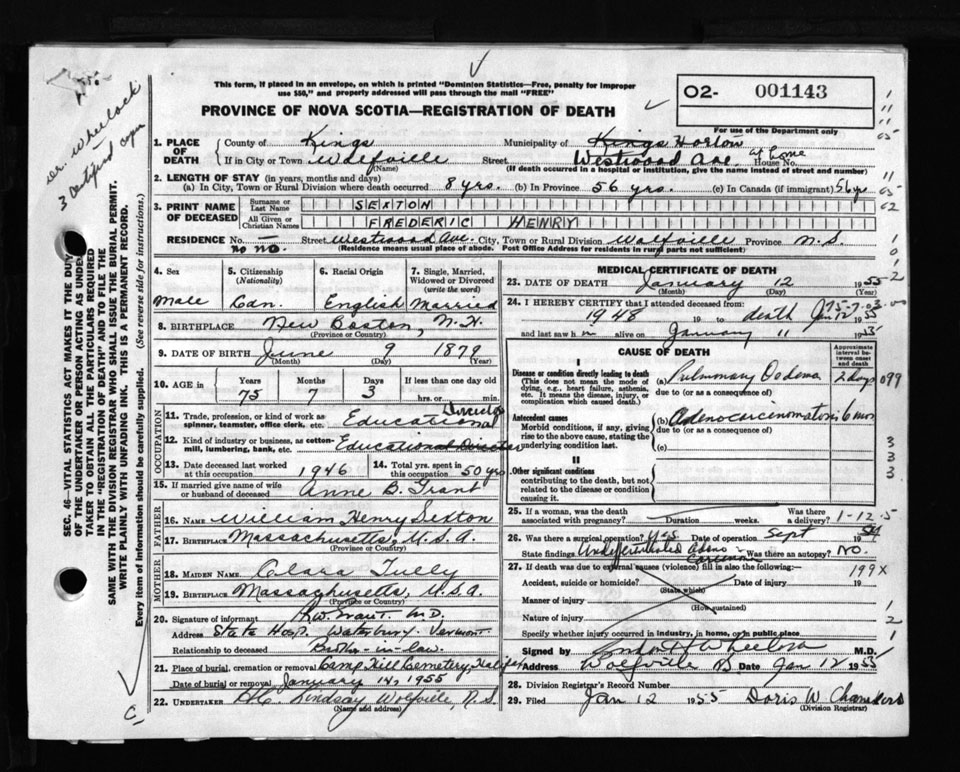 This form, if placed in an envelope, on which is printed "Dominion Statistics—Free, penalty for improper
use $50," and properly addressed will pass through the mail "FREE"
PROVINCE OF NOVA SCOTIA—REGISTRATION OF DEATH
02- 001143
For use of the Department only
Wheelock
3 Certified copies
SEC. 46—VITAL STATISTICS ACT MAKES IT THE DUTY
OF THE UNDERTAKER OR PERSON ACTING AS UNDER-
TAKER TO OBTAIN ALL THE PARTICULARS REQUIRED
IN THE "REGISTRATION OF DEATH" AND TO FILE THE
SAME WITH THE DIVISION REGISTRAR WHO SHALL ISSUE THE BURIAL PERMIT.
WRITE PLAINLY WITH UNFADING INK. THIS IS A PERMANENT RECORD.
Every item of information should be carefully supplied. (See reverse side for instructions.)
1. PLACE OF DEATH County of Kings Municipality of Kings Horton
If in City or Town Wolfville Street Westwood Ave. House No. at home
(Name) (If death occurred in a hospital or institution, give the name instead of street and number)
2. LENGTH OF STAY (in years, months and days)
(a) In City, Town or Rural Division where death occurred 8 yrs. (b) In Province 56 yrs. (c) In Canada (if immigrant) 56 yrs
3. PRINT NAME OF DECEASED Surname or Last Name SEXTON
All Given or Christian Names FREDERIC HENRY
RESIDENCE No. no no. Street Westwood Ave. City, Town or Rural Division Wolfville Province N.S.
(Residence means usual place of abode. Post Office Address for residents in rural parts not sufficient)
4. Sex Male
5. Citizenship (Nationality) Can.
6. Racial Origin English
7. Single, Married, Widowed or Divorced (write the word) Married
8. BIRTHPLACE New Boston, N.H.
(Province or Country)
9. DATE OF BIRTH June 9 1879
(Month) (Day) (Year)
10. AGE IN Years 75 Months 7 Days 3 If less than one day old hrs. or min.
OCCUPATION
11. Trade, profession, or kind of work as spinner, teamster, office clerk, etc. Educational Director
12. Kind of industry or business, as cotton-mill, lumbering, bank, etc. Educational Director
13. Date deceased last worked at this occupation 1946
14. Total yrs. spent in this occupation 50 yrs
15. If married give name of wife or husband of deceased Anne B. Grant
FATHER
16. NAME William Henry Sexton
17. BIRTHPLACE Massachusetts, U.S.A.
(Province or Country)
MOTHER
18. MAIDEN NAME Clara Tully
19. BIRTHPLACE Massachusetts, U.S.A.
(Province or Country)
20. Signature of informant R.W. Grant M.D.
Address State Hosp. Waterbury, Vermont
Relationship to deceased Brother-in-law.
21. Place of burial, cremation or removal Camp Hill Cemetery, Halifax
Date of burial or removal January 14, 1955
22. UNDERTAKER Lindsay Wolfville, N.S.
(Name and address)
MEDICAL CERTIFICATE OF DEATH
23. DATE OF DEATH January 12 1955
(Month) (Day) (Year)
24. I HEREBY CERTIFY that I attended deceased from:
1948 to death Jan 12 1955
and last saw h im alive on January 11 1955
CAUSE OF DEATH
Approximate interval between onset and death
I
Disease or condition directly leading to death
(This does not mean the mode of dying, e.g., heart failure, asthenia, etc. It means the disease, injury, or complication which caused death.)
(a) Pulmonary Oedema 2 days
due to (or as a consequence of)
Antecedent causes
Morbid conditions, if any, giving rise to the above cause, stating the underlying condition last.
(b) Adenocarcinomatosis 6 mos
due to (or as a consequence of)
(c)
II
Other significant conditions
contributing to the death, but not related to the disease or condition causing it.
25. If a woman, was the death associated with pregnancy? Duration weeks. Was there a delivery?
26. Was there a surgical operation? Yes Date of operation Sept 1954
State findings Undifferentiated Adeno-Carcinoma Was there an autopsy? No.
27. If death was due to external causes (violence) fill in also the following:—
Accident, suicide or homicide? Date of injury 19
(State which)
Manner of injury
(How sustained)
Nature of injury
Specify whether injury occurred in industry, in home, or in public place
Signed by M.D.
Address Wolfville Date Jan 12 1955
28. Division Registrar's Record Number
29. Filed Jan 12 1955 Doris W. Chambers
(Division Registrar)
099
1-12-5
199X